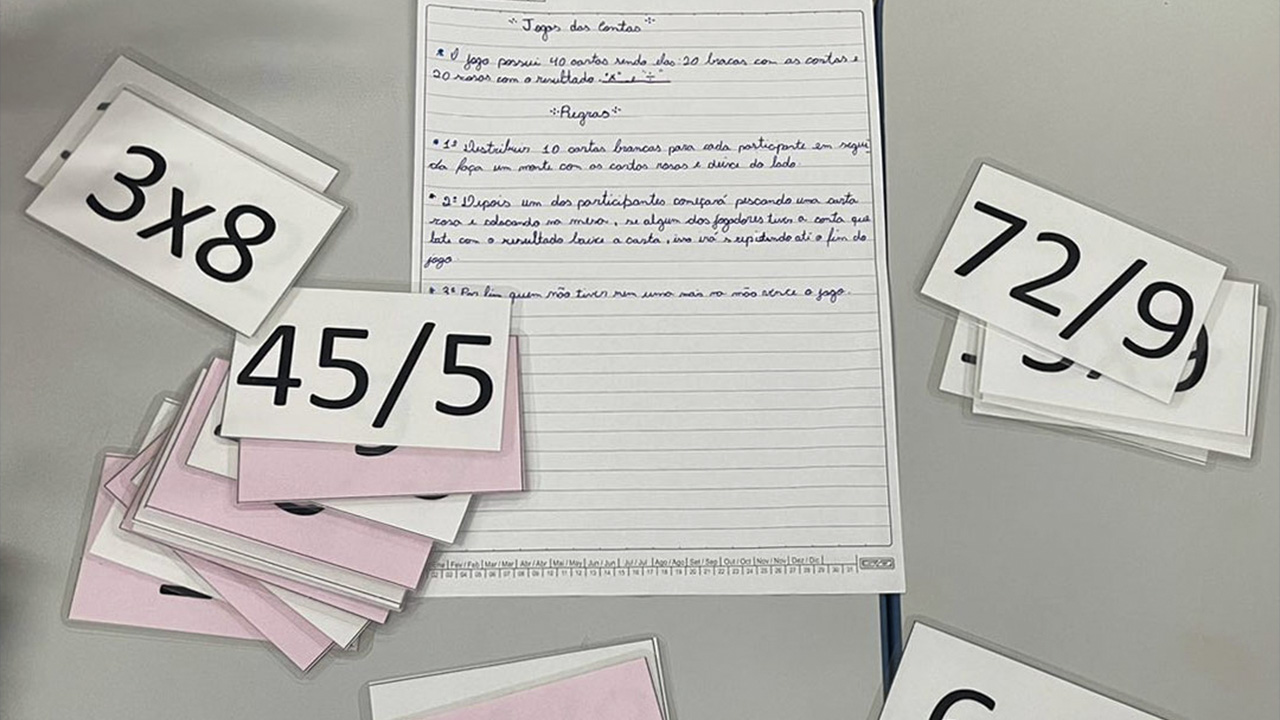 Jogos das Contas
O jogo possui 40 cartas sendo elas 20 bracas com as contas e
20 rosas com o resultado "x" e "÷"
Regras
1º Destribuir 10 cartas brancas para cada participante em segui
da faça um monte com as cartas rosas e deixe do lado.
2º Depois um dos participantes começará pescando uma carta
rosa e colocando na mesa, se algum dos jogadores tiver a conta que
bate com o resultado baixe a carta, isso irá s repitindo até o fim do
jogo
3º Por fim quem não tiver nem uma mais na mão vence o jogo.
3x8
45/5
72/9
Fev / Feb Mar / Mar Abr / Abr Mai / May Jun / Jun Jul / Jul Ago / Ago Set / Sep Out / Oct Nov / Nov Dez / Dic
02 03 04 05 06 07 08 09 10 11 12 13 14 15 16 17 18 19 20 21 22 23 24 25 26 27 28 29 30 31